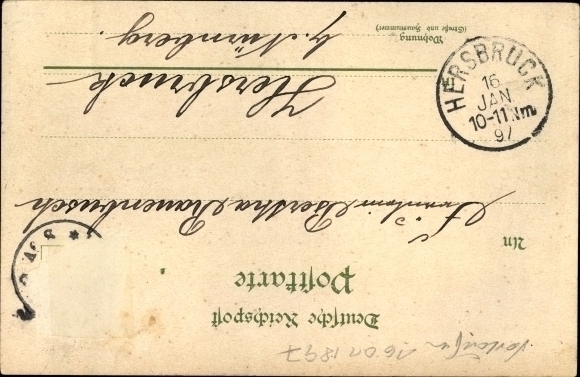 Deutsche Reichspost
Postkarte
An
Fräulein Bertha Brauenbusch
Hersbruck
b/ Nürnberg.
Wohnung
(Straße und Hausnummer)
HERSBRUCK
16
JAN
10-11Nm
97
16 01 1897